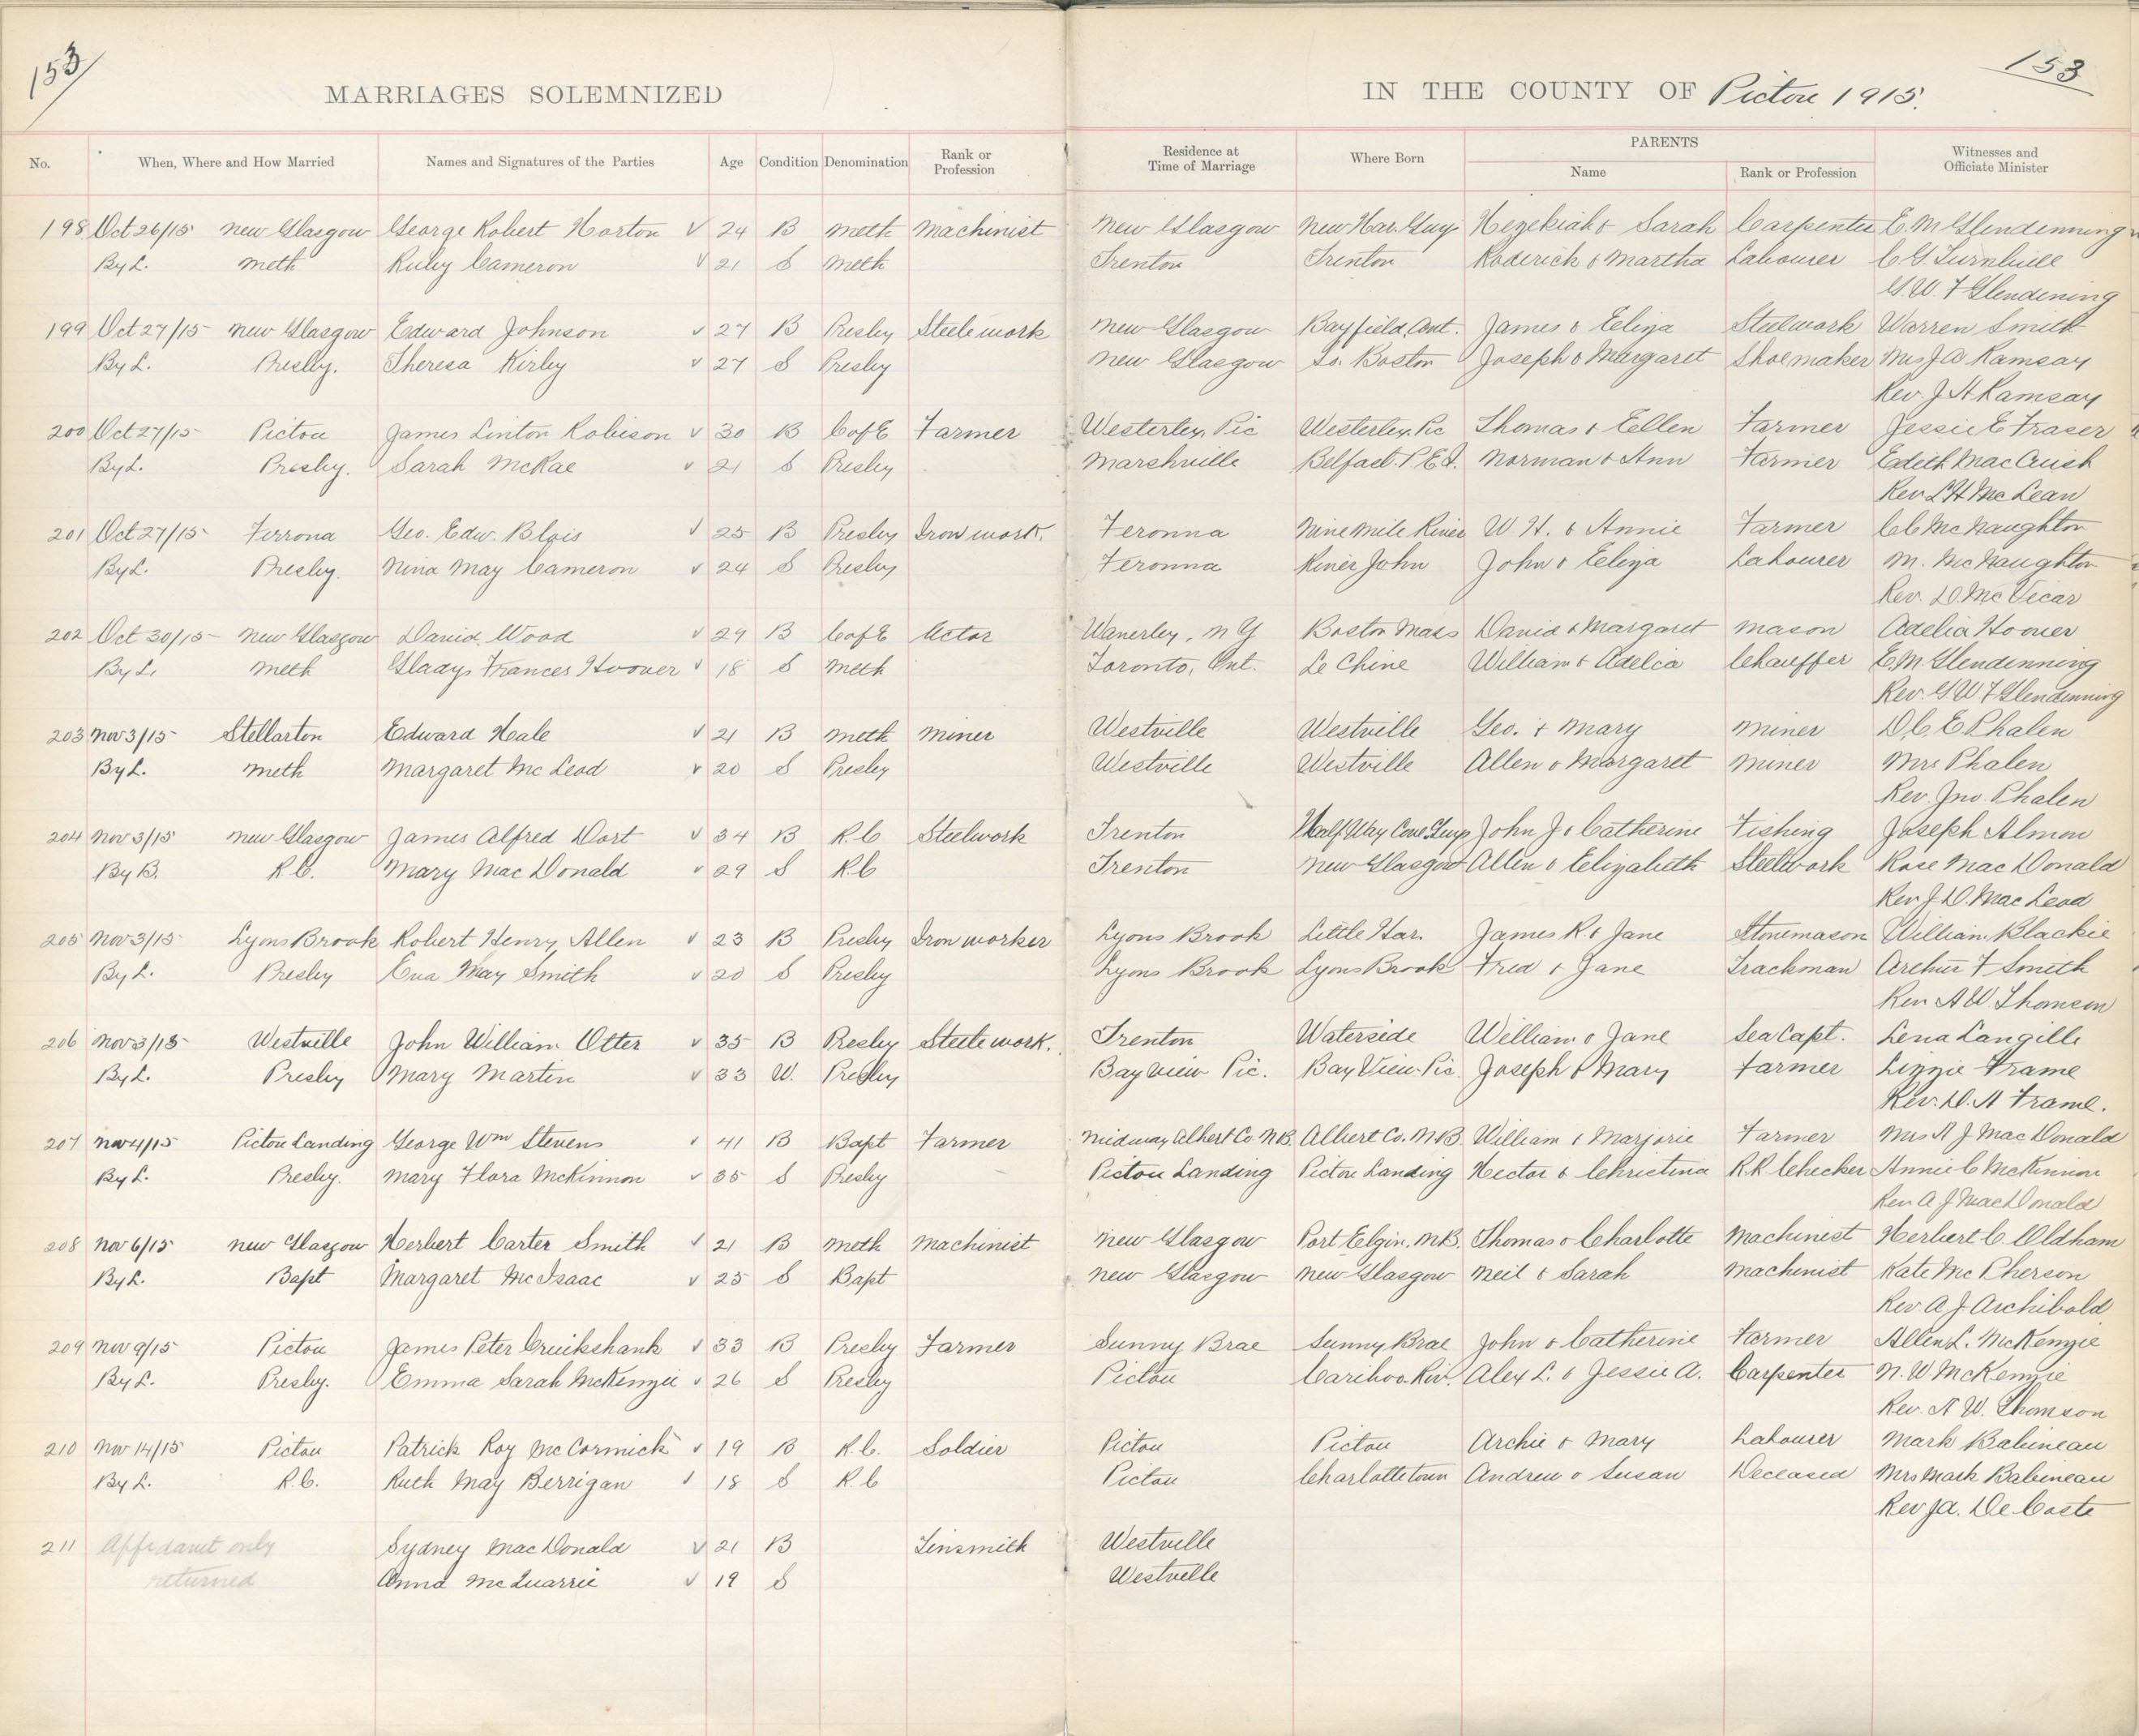 153
153
MARRIAGES SOLEMNIZED IN THE COUNTY OF Pictou 1915.
No. When, Where and How Married Names and Signatures of the Parties Age Condition Denomination Rank or Profession Residence at Time of Marriage Where Born PARENTS Name Rank or Profession Witnesses and Officiate Minister
198 Oct 26/15 New Glasgow George Robert Horton √ 24 B Meth Machinist New Glasgow New Har. Guy Hezekiah & Sarah Carpenter E. M Glendenning
By L. Meth Ruby Cameron √ 21 S Meth Trenton Trenton Roderick & Martha Labourer C G Turnbull
G W. F Glendening
199 Oct 27/15 New Glasgow Edward Johnson √ 27 B Presby Steelework New Glasgow Bayfield, Ont. James & Eliza Steelwork Warren Smith
By L. Presby. Theresa Kirby √ 27 S Presby New Glasgow So. Boston Joseph & Margaret Shoemaker Mrs J A Ramsay
Rev. J H Ramsay
200 Oct 27/15 Pictou James Linton Robison √ 30 B C of E Farmer Westerley, Pic Westerley, Pic Thomas & Ellen Farmer Jessie E Fraser
By L. Presby. Sarah McRae √ 21 S Presby Marshville Belfast. P E I. Norman & Ann Farmer Edith MacCuish
Rev L H McLean
201 Oct 27/15 Ferrona Geo. Edw. Blois √ 25 B Presby Iron work. Feronna Nine mile River W H. & Annie Farmer C C McNaughton
By L. Presby. Nina May Cameron √ 24 S Presby Feronna River John John & Eliza Labourer M. McNaughton
Rev. D. McVicar
202 Oct 30/15 New Glasgow David Wood √ 29 B C of E Actor Waverley, N Y Boston Mass David & Margaret Mason Adelia Hoover
By L. Meth Gladys Frances Hoover √ 18 S Meth Toronto, Ont. Le Chine William & Adelia Chauffer E. M. Glendenning
Rev. G W F Glendenning
203 Nov 3/15 Stellarton Edward Hale √ 21 B Meth Miner Westville Westville Geo. & Mary Miner D. C. E Phalen
By L. Meth Margaret McLeod √ 20 S Presby Westville Westville Allen & Margaret Miner Mrs Phalen
Rev. Jno. Phalen
204 Nov 3/15 New Glasgow James Alfred Dort √ 34 B R. C Steelwork Trenton Half Way Cove Guy John J & Catherine Fishing Joseph Almon
By B. R. C. Mary MacDonald √ 29 S R C Trenton New Glasgow Allen & Elizabeth Steelwork Rose MacDonald
Rev J D. MacLeod
205 Nov 3/15 Lyons Brook Robert Henry Allen √ 23 B Presby Iron worker Lyons Brook Little Har. James R. & Jane Stonemason William Blackie
By L. Presby Eva May Smith √ 20 S Presby Lyons Brook Lyons Brook Fred & Jane Trackman Arthur F Smith
Rev A W Thomson
206 Nov 3/15 Westville John William Otter √ 35 B Presby Steele work. Trenton Waterside William & Jane Sea Capt. Lena Langille
By L. Presby Mary Martin √ 33 W. Presby Bay View Pic. Bay View Pic. Joseph & Mary Farmer Lizzie Frame
Rev. D. A Frame.
207 Nov 4/15 Pictou Landing George Wm Stevens √ 41 B Bapt Farmer Midway Albert Co. N B. Albert Co. N. B. William & Marjorie Farmer Mrs A J MacDonald
By L. Presby. Mary Flora McKinnon √ 35 S Presby Pictou Landing Pictou Landing Hector & Christina R. R Checker Annie C McKinnon
Rev A. J MacDonald
208 Nov 6/15 New Glasgow Herbert Carter Smith √ 21 B Meth Machinist New Glasgow Port Elgin. N.B. Thomas & Charlotte Machinist Herbert C Oldham
By L. Bapt Margaret McIsaac √ 25 S Bapt New Glasgow New Glasgow Neil & Sarah Machinist Kate McPherson
Rev A. J Archibald
209 Nov 9/15 Pictou James Peter Cruikshank √ 33 B Presby Farmer Sunny Brae Sunny Brae John & Catherine Farmer Allen L. McKenzie
By L. Presby. Emma Sarah McKenzie √ 26 S Presby Pictou Cariboo Riv. Alex L. & Jessie A. Carpenter N. W. McKenzie
Rev. A W. Thomson
210 Nov 14/15 Pictou Patrick Roy McCormick √ 19 B R. C. Soldier Pictou Pictou Archie & Mary Labourer Mark Babineau
By L. R. C. Ruth May Berrigan √ 18 S R. C Pictou Charlottetown Andrew & Susan Deceased Mrs Mark Babineau
Rev J A. DeCoste
211 Affidavit only Sydney MacDonald √ 21 B Tinsmith Westville
returned Anna McQuarrie √ 19 S Westville